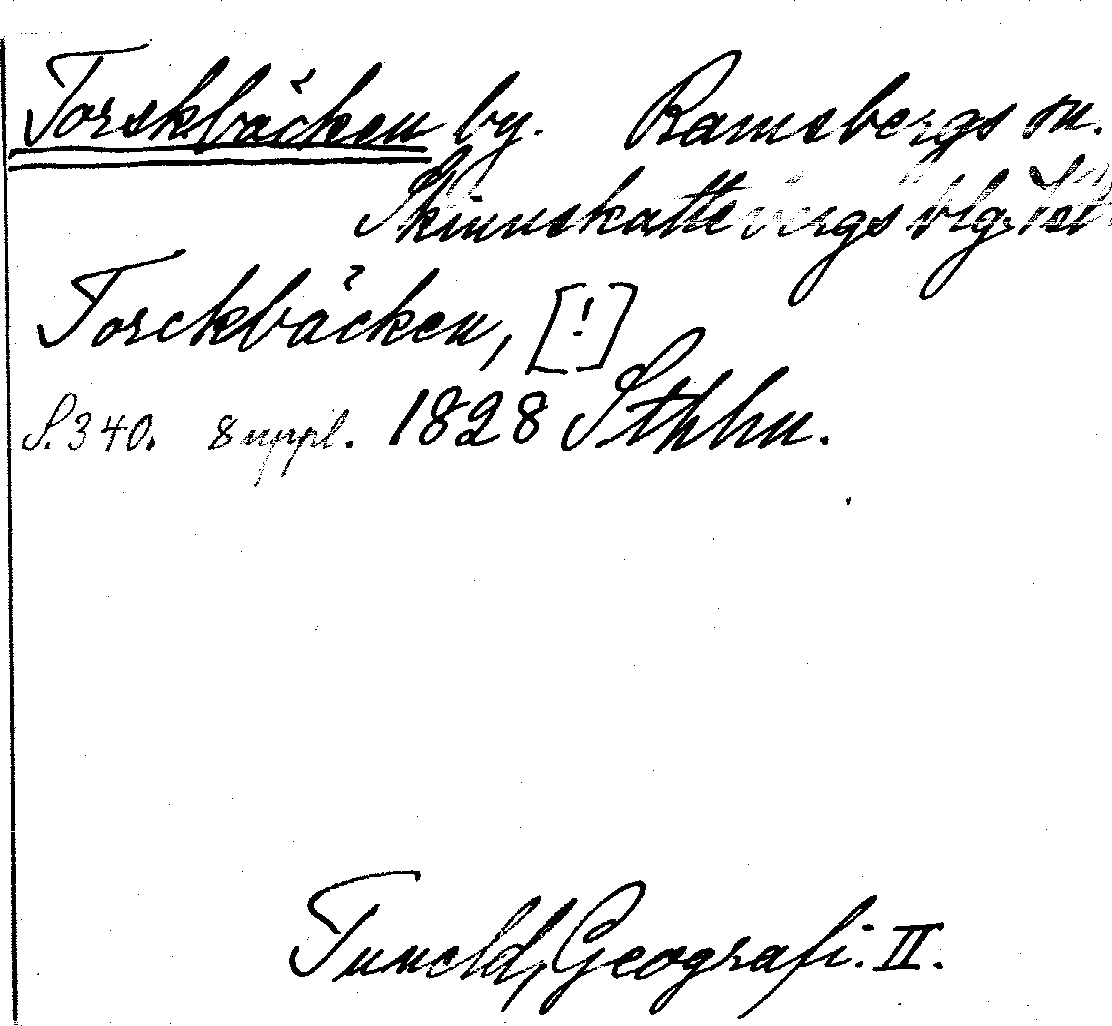 Torskbäcken by. Ramsbergs sn.
Skinnskattebergs blg.
Torckbäcken, [!]
S. 340. Suppl. 1828 Sthhm.
Tuneld, Geografi. II.